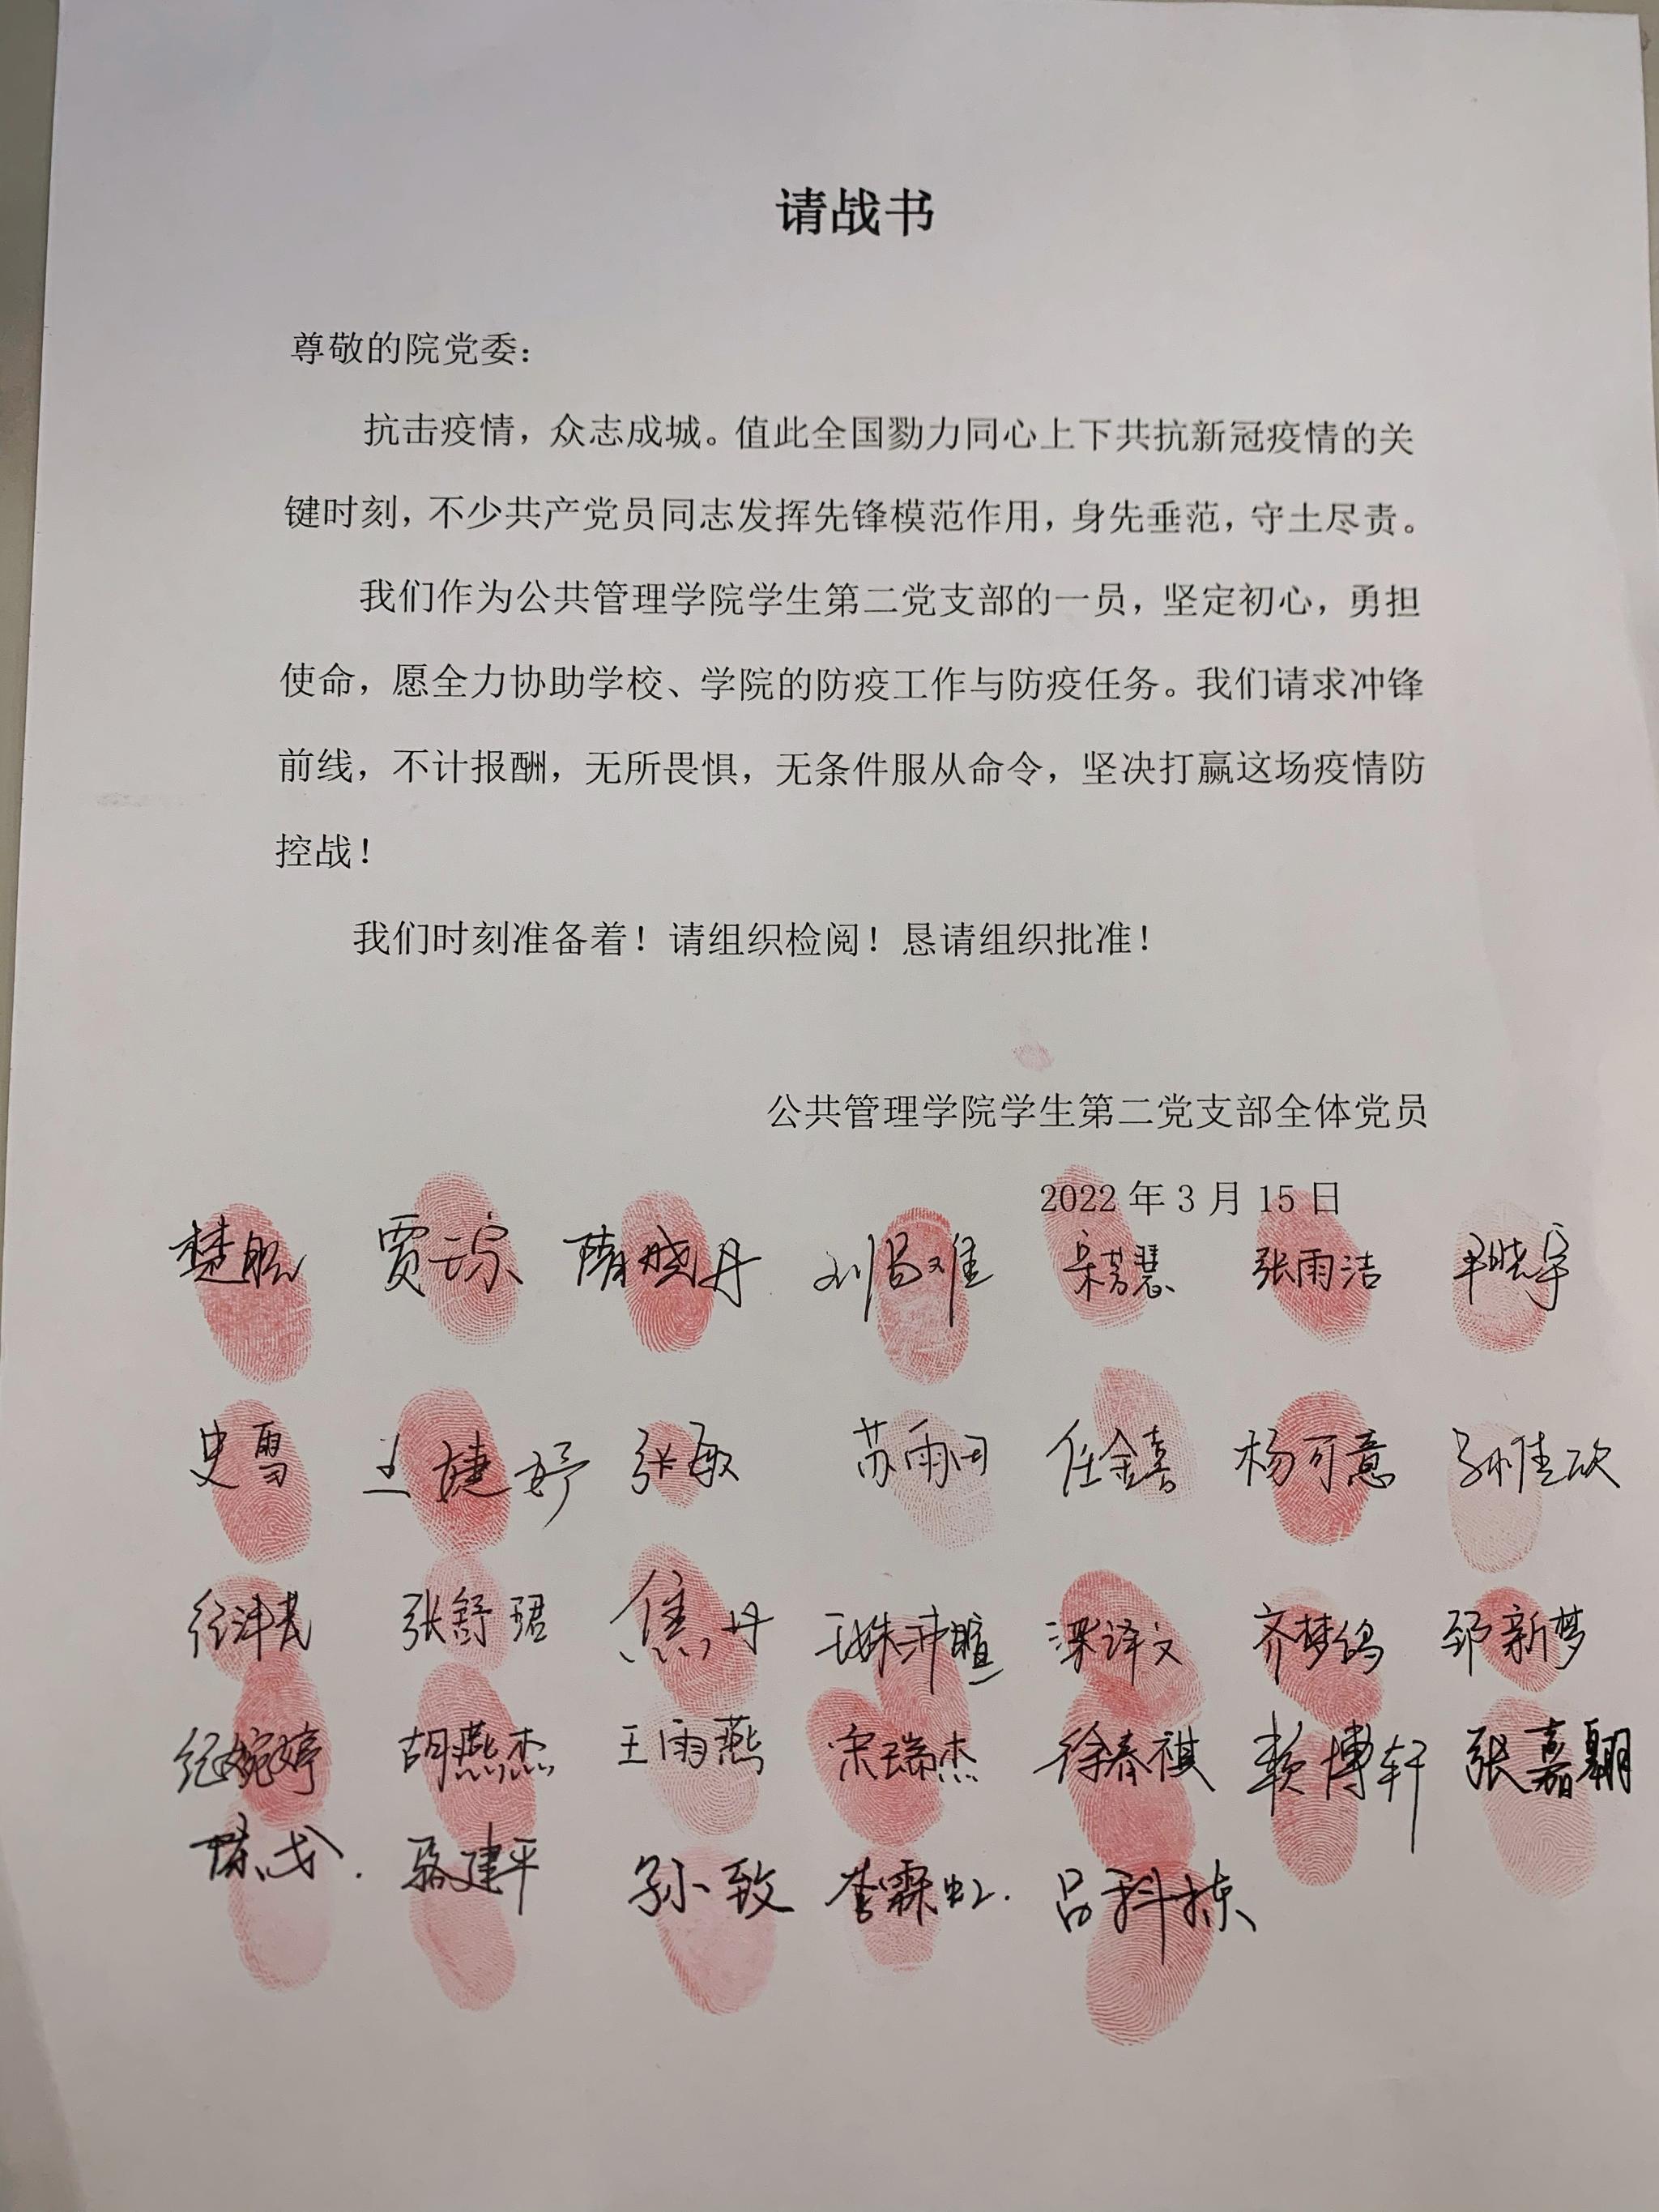 请战书
尊敬的院党委：
抗击疫情，众志成城。值此全国勠力同心上下共抗新冠疫情的关
键时刻，不少共产党员同志发挥先锋模范作用，身先垂范，守土尽责。
我们作为公共管理学院学生第二党支部的一员，坚定初心，勇担
使命，愿全力协助学校、学院的防疫工作与防疫任务。我们请求冲锋
前线，不计报酬，无所畏惧，无条件服从命令，坚决打赢这场疫情防
控战！
我们时刻准备着！请组织检阅！恳请组织批准！
公共管理学院学生第二党支部全体党员
2022 年 3 月 15 日
贾琼 隋晓丹 张雨洁
史雪 王婕婷 张敏 苏雨田 任金喜 杨可意 孙佳欣
张舒珺 焦丹 梁译文 齐梦鸽 郅新梦
纪婉婷 胡燕杰 王雨燕 宋瑞杰 徐春祺 赖博轩 张嘉翱
骆建平 孙致 李霖虹 吕科栋